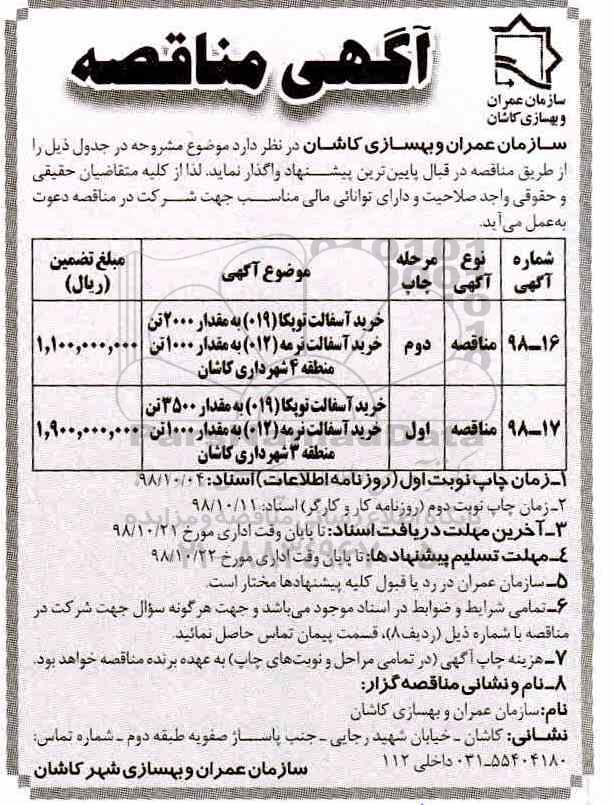 آگهی مناقصه
سازمان عمران
و بهسازی کاشان
سازمان عمران و بهسازی کاشان در نظر دارد موضوع مشروحه در جدول ذیل را
از طریق مناقصه در قبال پایین‌ترین پیشنهاد واگذار نماید. لذا از کلیه متقاضیان حقیقی
و حقوقی واجد صلاحیت و دارای توانائی مالی مناسب جهت شرکت در مناقصه دعوت
به‌عمل می‌آید.
شماره آگهی | نوع آگهی | مرحله چاپ | موضوع آگهی | مبلغ تضمین (ریال)
۹۸-۱۶ | مناقصه | دوم | خرید آسفالت توپکا (۰۱۹) به مقدار ۲۰۰۰ تن خرید آسفالت نرمه (۰۱۲) به مقدار ۱۰۰۰ تن منطقه ۴ شهرداری کاشان | ۱,۱۰۰,۰۰۰,۰۰۰
۹۸-۱۷ | مناقصه | اول | خرید آسفالت توپکا (۰۱۹) به مقدار ۳۵۰۰ تن خرید آسفالت نرمه (۰۱۲) به مقدار ۱۰۰۰ تن منطقه ۳ شهرداری کاشان | ۱,۹۰۰,۰۰۰,۰۰۰
۱ـ زمان چاپ نوبت اول (روزنامه اطلاعات) اسناد: ۹۸/۱۰/۰۴
۲ـ زمان چاپ نوبت دوم (روزنامه کار و کارگر) اسناد: ۹۸/۱۰/۱۱
۳ـ آخرین مهلت دریافت اسناد: تا پایان وقت اداری مورخ ۹۸/۱۰/۲۱
۴ـ مهلت تسلیم پیشنهادها: تا پایان وقت اداری مورخ ۹۸/۱۰/۲۲
۵ـ سازمان عمران در رد یا قبول کلیه پیشنهادها مختار است.
۶ـ تمامی شرایط و ضوابط در اسناد موجود می‌باشد و جهت هرگونه سؤال جهت شرکت در
مناقصه با شماره ذیل (ردیف۸)، قسمت پیمان تماس حاصل نمائید.
۷ـ هزینه چاپ آگهی (در تمامی مراحل و نوبت‌های چاپ) به عهده برنده مناقصه خواهد بود.
۸ـ نام و نشانی مناقصه‌گزار:
نام: سازمان عمران و بهسازی کاشان
نشانی: کاشان ـ خیابان شهید رجایی ـ جنب پاساژ صفویه طبقه دوم ـ شماره تماس:
۰۳۱-۵۵۴۰۴۱۸۰ داخلی ۱۱۲
سازمان عمران و بهسازی شهر کاشان
ParsNamadData